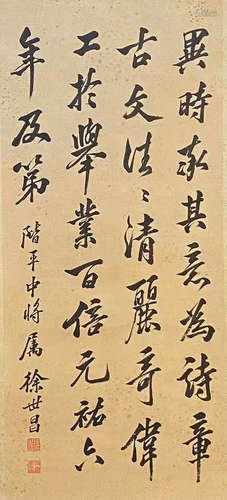 異時求其意為詩章
古文往々清麗奇偉
工於舉業百倍元祐六
年及第
階平中將屬 徐世昌